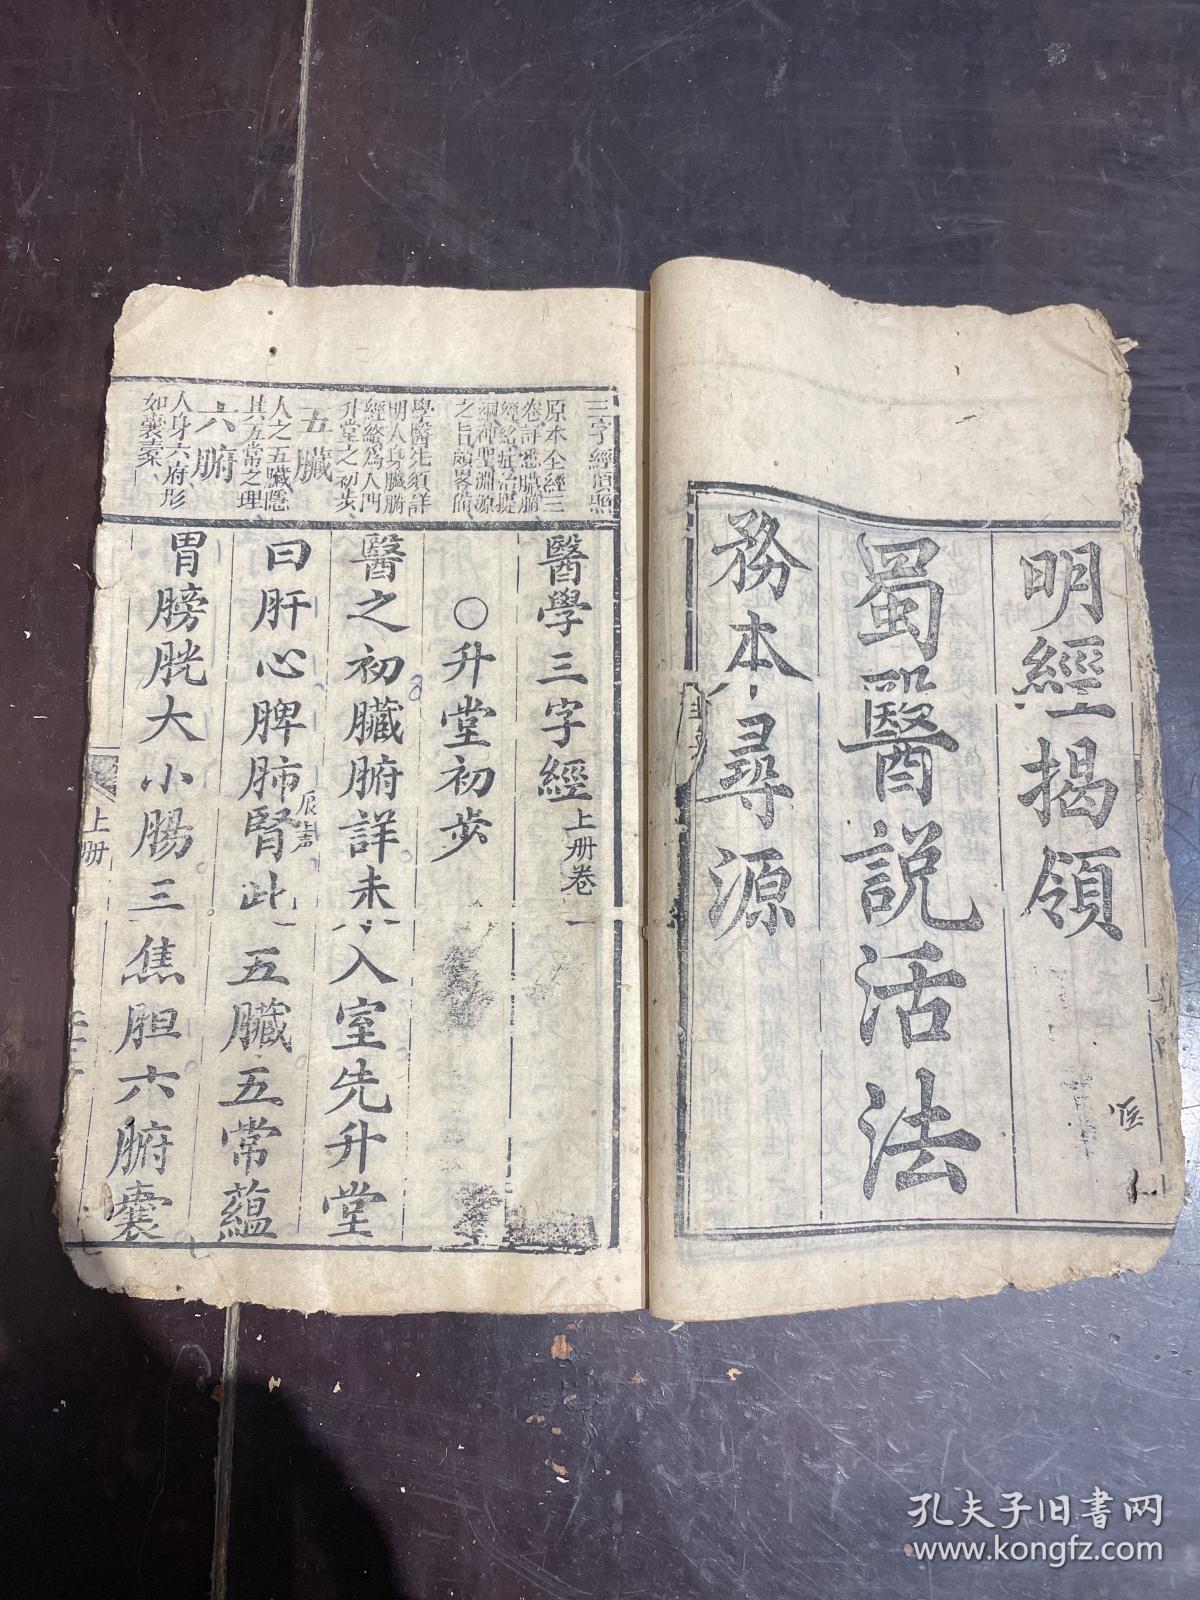 明經揭領
蜀醫説活法
務本尋源
三字經
原本全經三
卷詳悉臟腑
經絡症治提
綱神聖淵源
之旨頗畧備
學醫先須詳
明人身臟腑
經絡為入門
升堂之初步
五臟
人之五臟隱
其五常之理
六腑
人身六府形
如囊橐
醫學三字經上冊卷一
〇升堂初步
醫之初臟腑詳未入室先升堂
曰肝心脾肺腎此五臟五常蘊
胃膀胱大小腸三焦胆六腑囊
上冊
孔夫子旧书网
www.kongfz.com